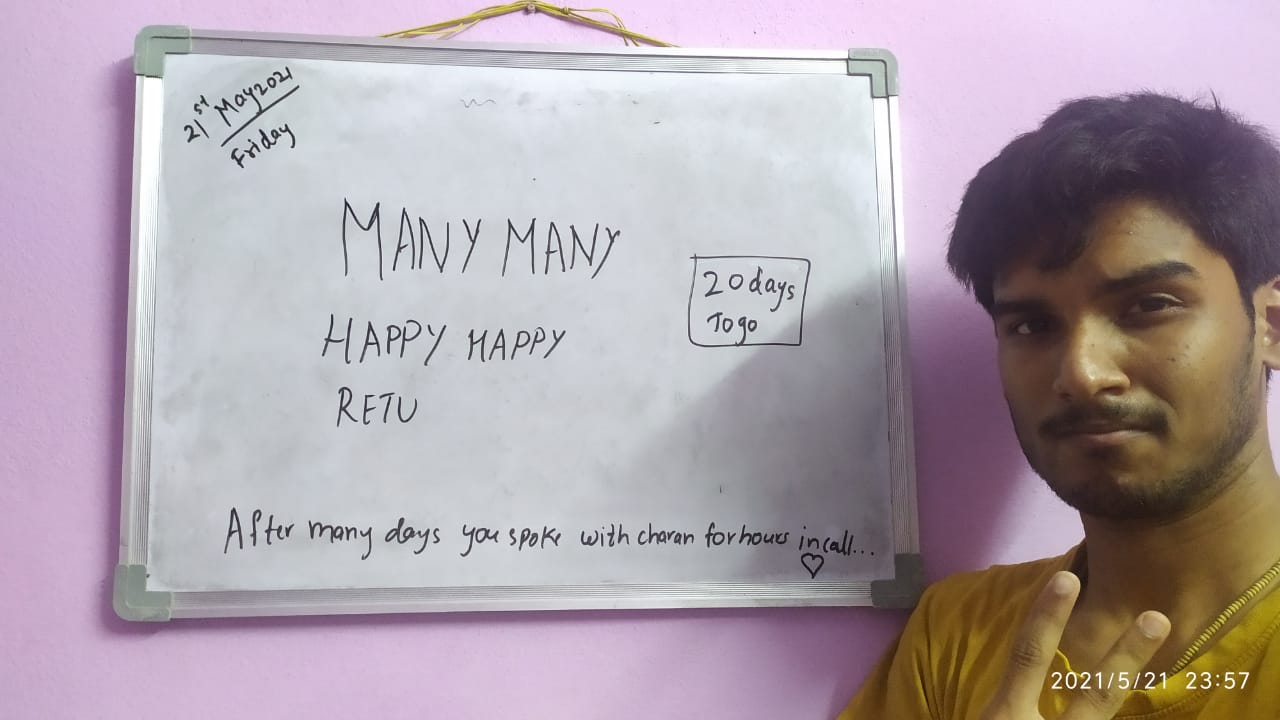 21st May 2021
Friday
MANY MANY
HAPPY HAPPY
RETU
20 days
To go
After many days you spoke with charan for hours in call...
2021/5/21 23:57